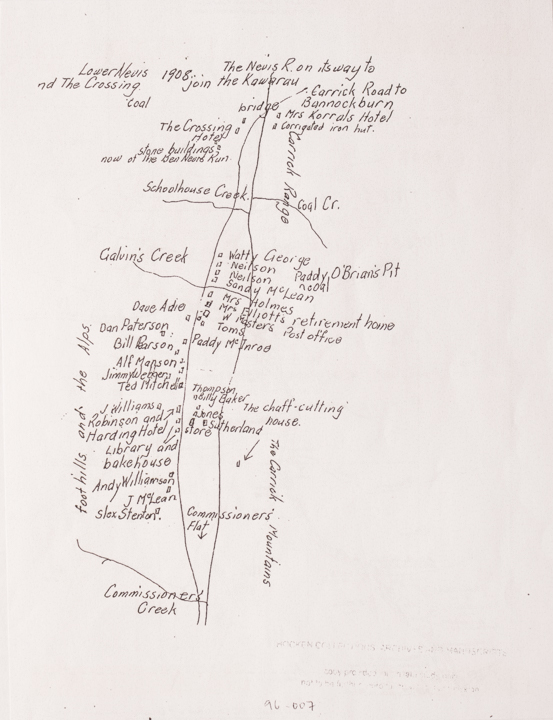 Lower Nevis 1908.
nd The Crossing
Coal
The Nevis R. on its way to
join the Kawarau
Carrick Road to
Bannockburn
bridge
Mrs Korrals Hotel
Corrigated iron hut.
The Crossing
Hotel
stone buildings
now of the Ben Nevis Run.
Carrick Range
Schoolhouse Creek.
Coal Cr.
Galvin's Creek
Watty George
Neilson
Neilson
Sandy McLean
Paddy O'Brian's Pit
Mrs Holmes
Mrs Elliotts retirement home
W Masters Post office
Toms
Dave Adie
Dan Paterson
Bill Parson
Paddy McInroe
Alf Manson
Jimmy
Ted Mitchell
foothills and the Alps.
Thompson
Baker
Jones
Sutherland
store
The chaff-cutting
house.
J Williams
Robinson and
Harding Hotel
Library and
bakehouse
Andy Williamson
J McLean
Stenton.
The Carrick Mountains
Commissioners'
Flat
Commissioners
Creek
96-007